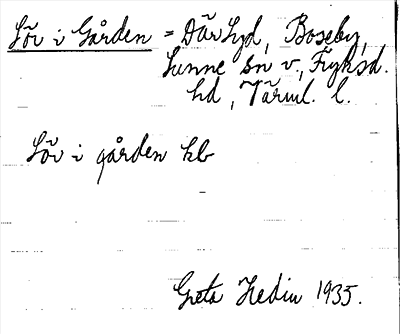 Löv i Gården = Där Syd, Boseby,
Sunne sn v., Fryksd.
hd, Värml. l.
Löv i gården hb
Greta Hedin 1935.